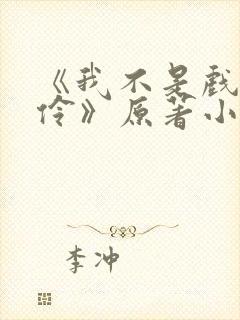 《我不是戲
伶》原著小
李冲